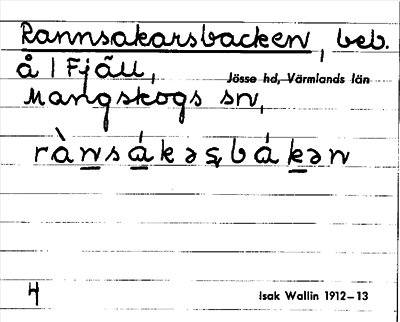 Rannsakarsbacken, beb.
å 1 Fjäll,
Jösse hd, Värmlands län
Mangskogs sn,
rànsákəs̨bákən
4
Isak Wallin 1912–13